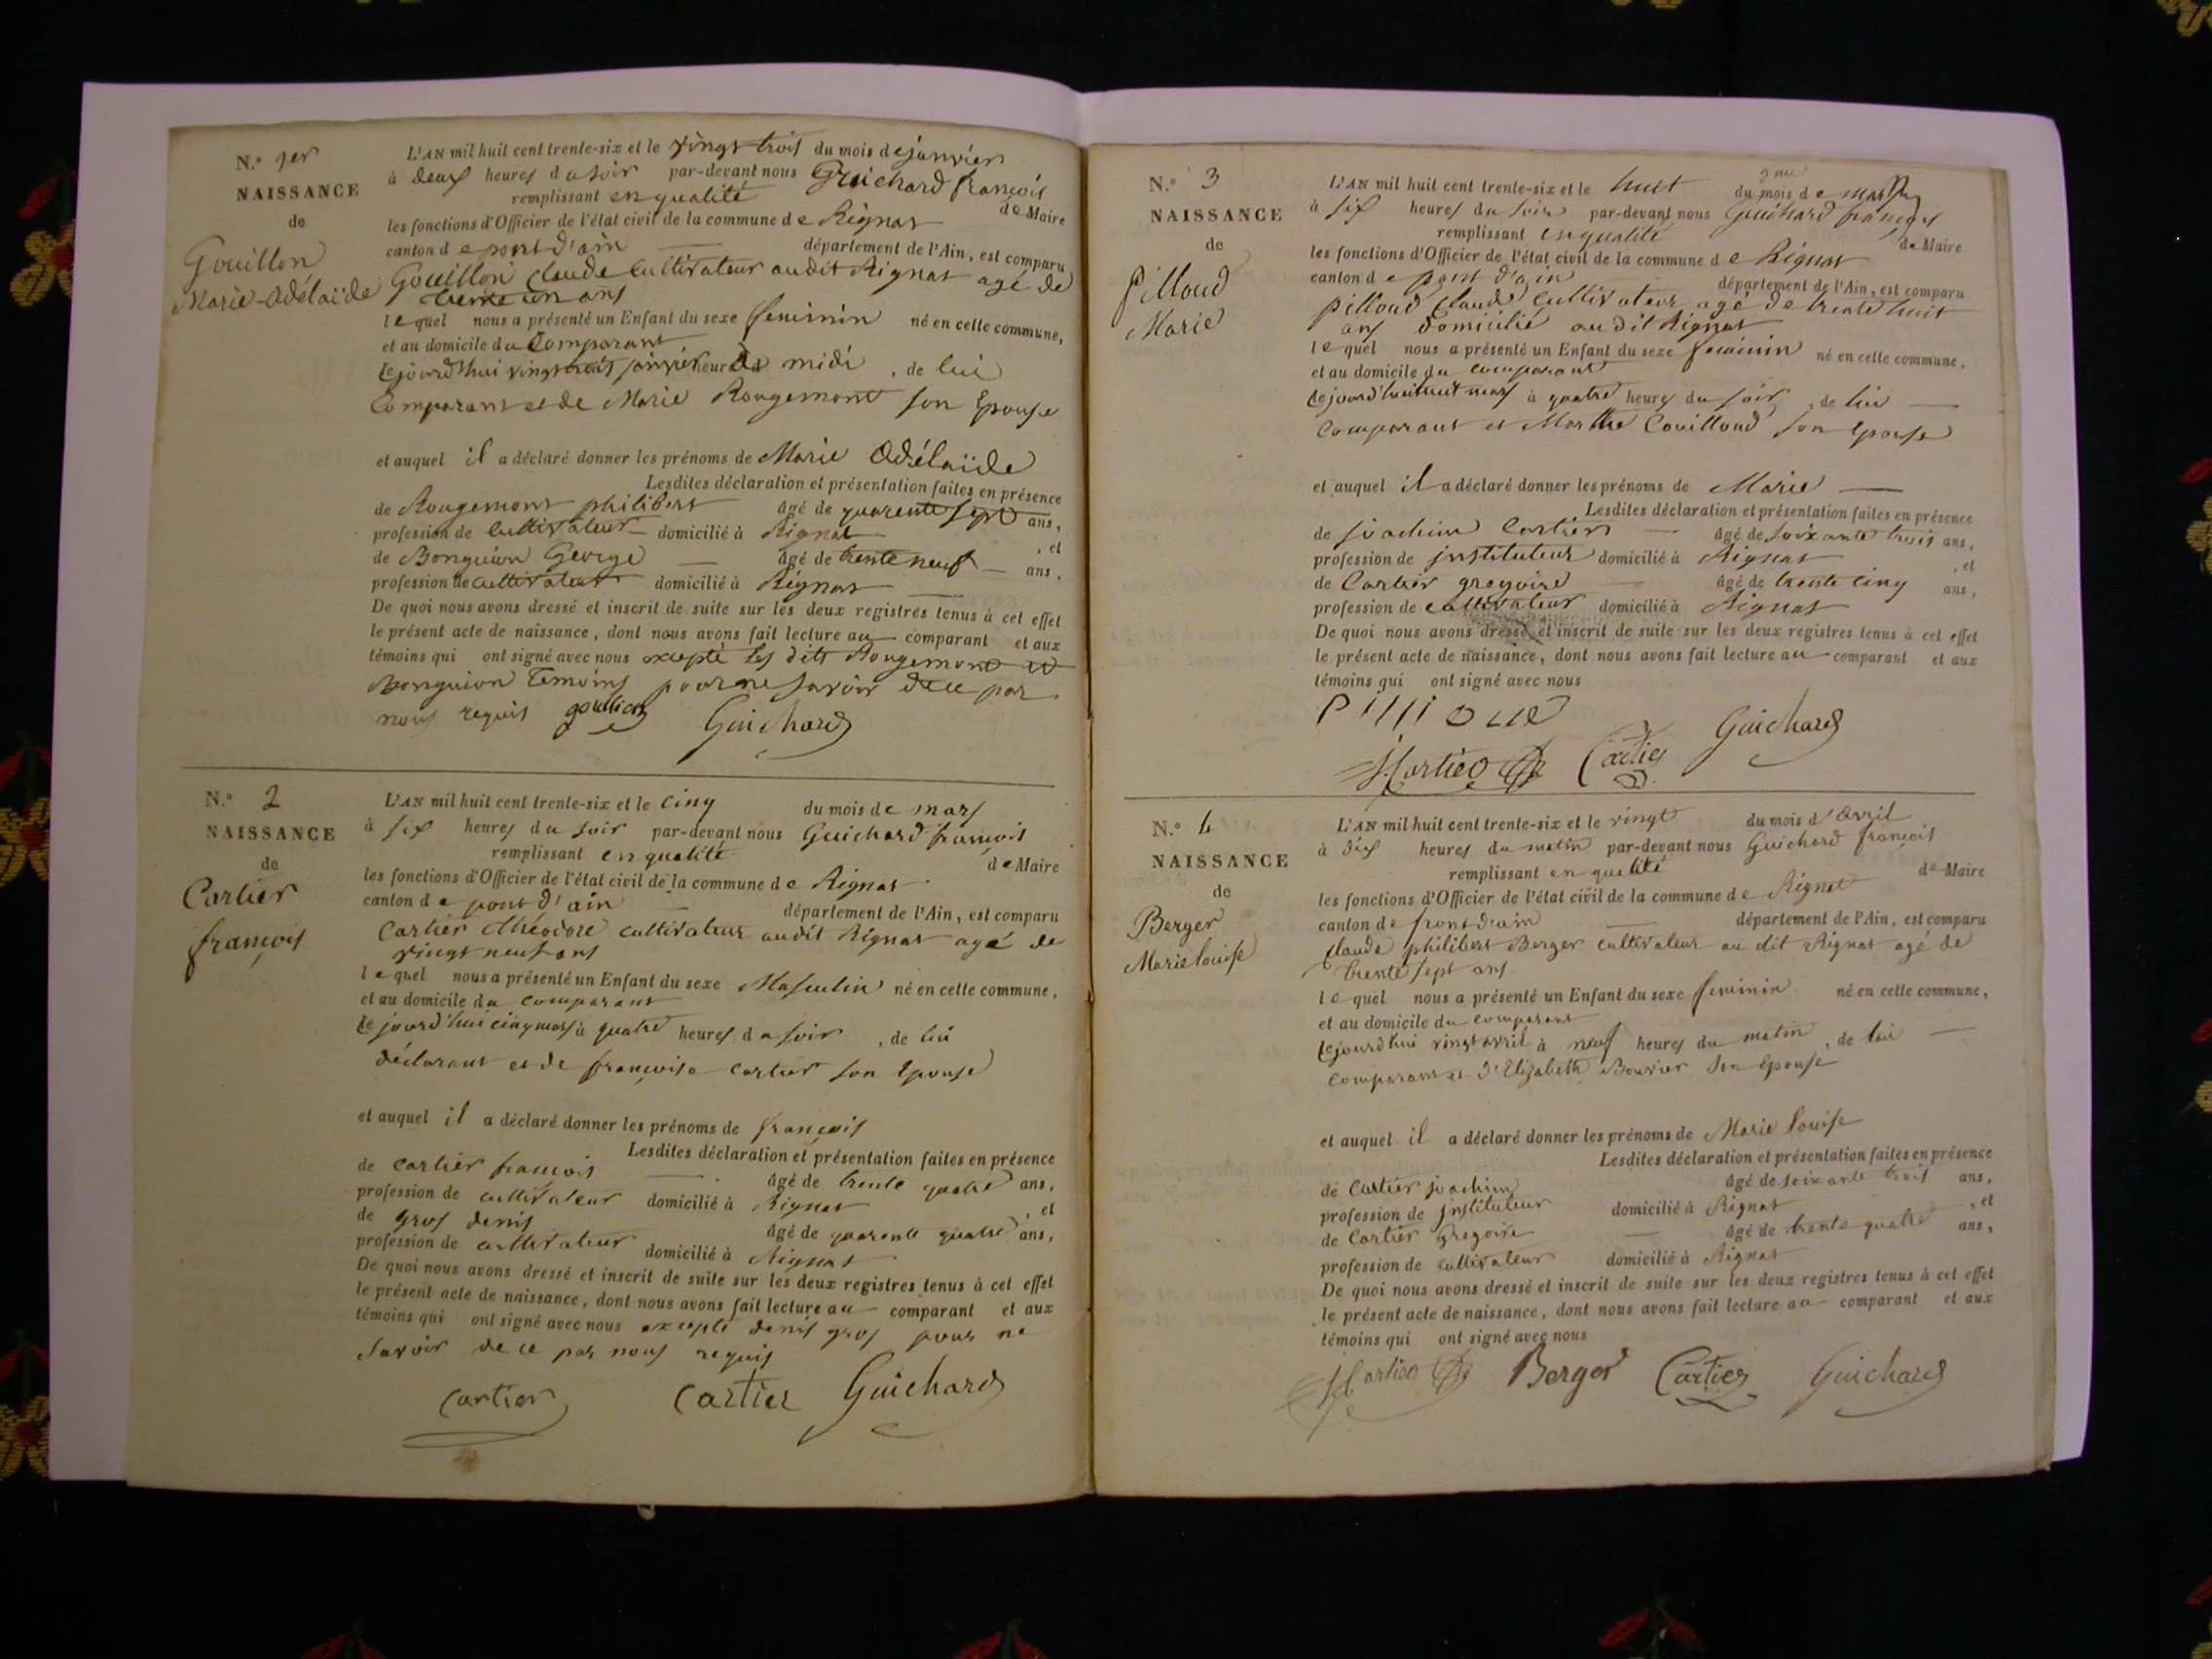 N.° 1er
NAISSANCE
de
Gouillon
Marie-Adélaïde
L'AN mil huit cent trente-six et le vingt trois du mois de janvier
à deux heures du soir par-devant nous Guichard françois
remplissant en qualité de Maire
les fonctions d'Officier de l'état civil de la commune de Rignat
canton de pont d'ain département de l'Ain, est comparu
Gouillon Claude Cultivateur audit Rignat agé de
trente un ans
lequel nous a présenté un Enfant du sexe feminin né en cette commune,
et au domicile du Comparant
cejourd'hui vingt trois janvier heure de midi , de lui
Comparant et de Marie Rougemont son Epouse
et auquel il a déclaré donner les prénoms de Marie Adélaïde
Lesdites déclaration et présentation faites en présence
de Rougemont philibert âgé de quarente sept ans,
profession de Cultivateur domicilié à Rignat , et
de Bonguion George âgé de trente neuf ans,
profession de cultivateur domicilié à Rignat
De quoi nous avons dressé et inscrit de suite sur les deux registres tenus à cet effet
le présent acte de naissance, dont nous avons fait lecture au comparant et aux
témoins qui ont signé avec nous excepté les dits Rougemont et
Bonguion Temoins pour ne savoir de ce par
nous requis gouillon Guichard
N.° 2
NAISSANCE
de
Cartier
françois
L'AN mil huit cent trente-six et le cinq du mois de mars
à six heures du soir par-devant nous Guichard françois
remplissant en qualité de Maire
les fonctions d'Officier de l'état civil de la commune de Rignat
canton de pont d'ain département de l'Ain, est comparu
Cartier théodore cultivateur audit Rignat agé de
vingt neuf ans
lequel nous a présenté un Enfant du sexe Masculin né en cette commune,
et au domicile du comparant
cejourd'hui cinq mars à quatre heures du soir , de lui
déclarant et de françoise cartier son Epouse
et auquel il a déclaré donner les prénoms de françois
Lesdites déclaration et présentation faites en présence
de cartier françois âgé de trente quatre ans,
profession de cultivateur domicilié à Rignat , et
de gros denis âgé de quarente quatre ans,
profession de cultivateur domicilié à Rignat
De quoi nous avons dressé et inscrit de suite sur les deux registres tenus à cet effet
le présent acte de naissance, dont nous avons fait lecture au comparant et aux
témoins qui ont signé avec nous excepté denis gros pour ne
savoir de ce par nous requis
Cartier Cartier Guichard
N.° 3
NAISSANCE
de
Pilloud
Marie
L'AN mil huit cent trente-six et le huit du mois de mars
à six heures du soir par-devant nous Guichard françois
remplissant en qualité de Maire
les fonctions d'Officier de l'état civil de la commune de Rignat
canton de pont d'ain département de l'Ain, est comparu
pilloud Claude Cultivateur agé de trente huit
ans domicilié audit Rignat
lequel nous a présenté un Enfant du sexe feminin né en cette commune,
et au domicile du comparant
cejourd'hui huit mars à quatre heures du soir , de lui
Comparant et Marthe Couilloud son Epouse
et auquel il a déclaré donner les prénoms de Marie
Lesdites déclaration et présentation faites en présence
de joachim Cartier âgé de soixante trois ans,
profession de jnstituteur domicilié à Rignat , et
de Cartier gregoire âgé de trente cinq ans,
profession de cultivateur domicilié à Rignat
De quoi nous avons dressé et inscrit de suite sur les deux registres tenus à cet effet
le présent acte de naissance, dont nous avons fait lecture au comparant et aux
témoins qui ont signé avec nous
Guichard
Cartier
N.° 4
NAISSANCE
de
Berger
Marie louise
L'AN mil huit cent trente-six et le vingt du mois d'avril
à dix heures du matin par-devant nous Guichard françois
remplissant en qualité de Maire
les fonctions d'Officier de l'état civil de la commune de Rignat
canton de pont d'ain département de l'Ain, est comparu
Claude philibert Berger cultivateur au dit Rignat agé de
trente sept ans
lequel nous a présenté un Enfant du sexe feminin né en cette commune,
et au domicile du comparant
cejourd'hui vingt avril à neuf heures du matin , de lui
comparant et d'Elizabeth Bouvier son Epouse
et auquel il a déclaré donner les prénoms de Marie louise
Lesdites déclaration et présentation faites en présence
de Cartier joachim âgé de soixante trois ans,
profession de jnstituteur domicilié à Rignat , et
de Cartier Gregoire âgé de trente quatre ans,
profession de cultivateur domicilié à Rignat
De quoi nous avons dressé et inscrit de suite sur les deux registres tenus à cet effet
le présent acte de naissance, dont nous avons fait lecture au comparant et aux
témoins qui ont signé avec nous
Berger Cartier Guichard